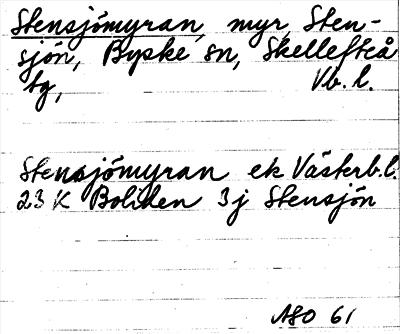 Stensjömyran, myr, Sten-
sjön, Byske sn, Skellefteå
tg, Vb. l.
Stensjömyran ek Västerb. l.
23 K Boliden 3j Stensjön
ASO 61